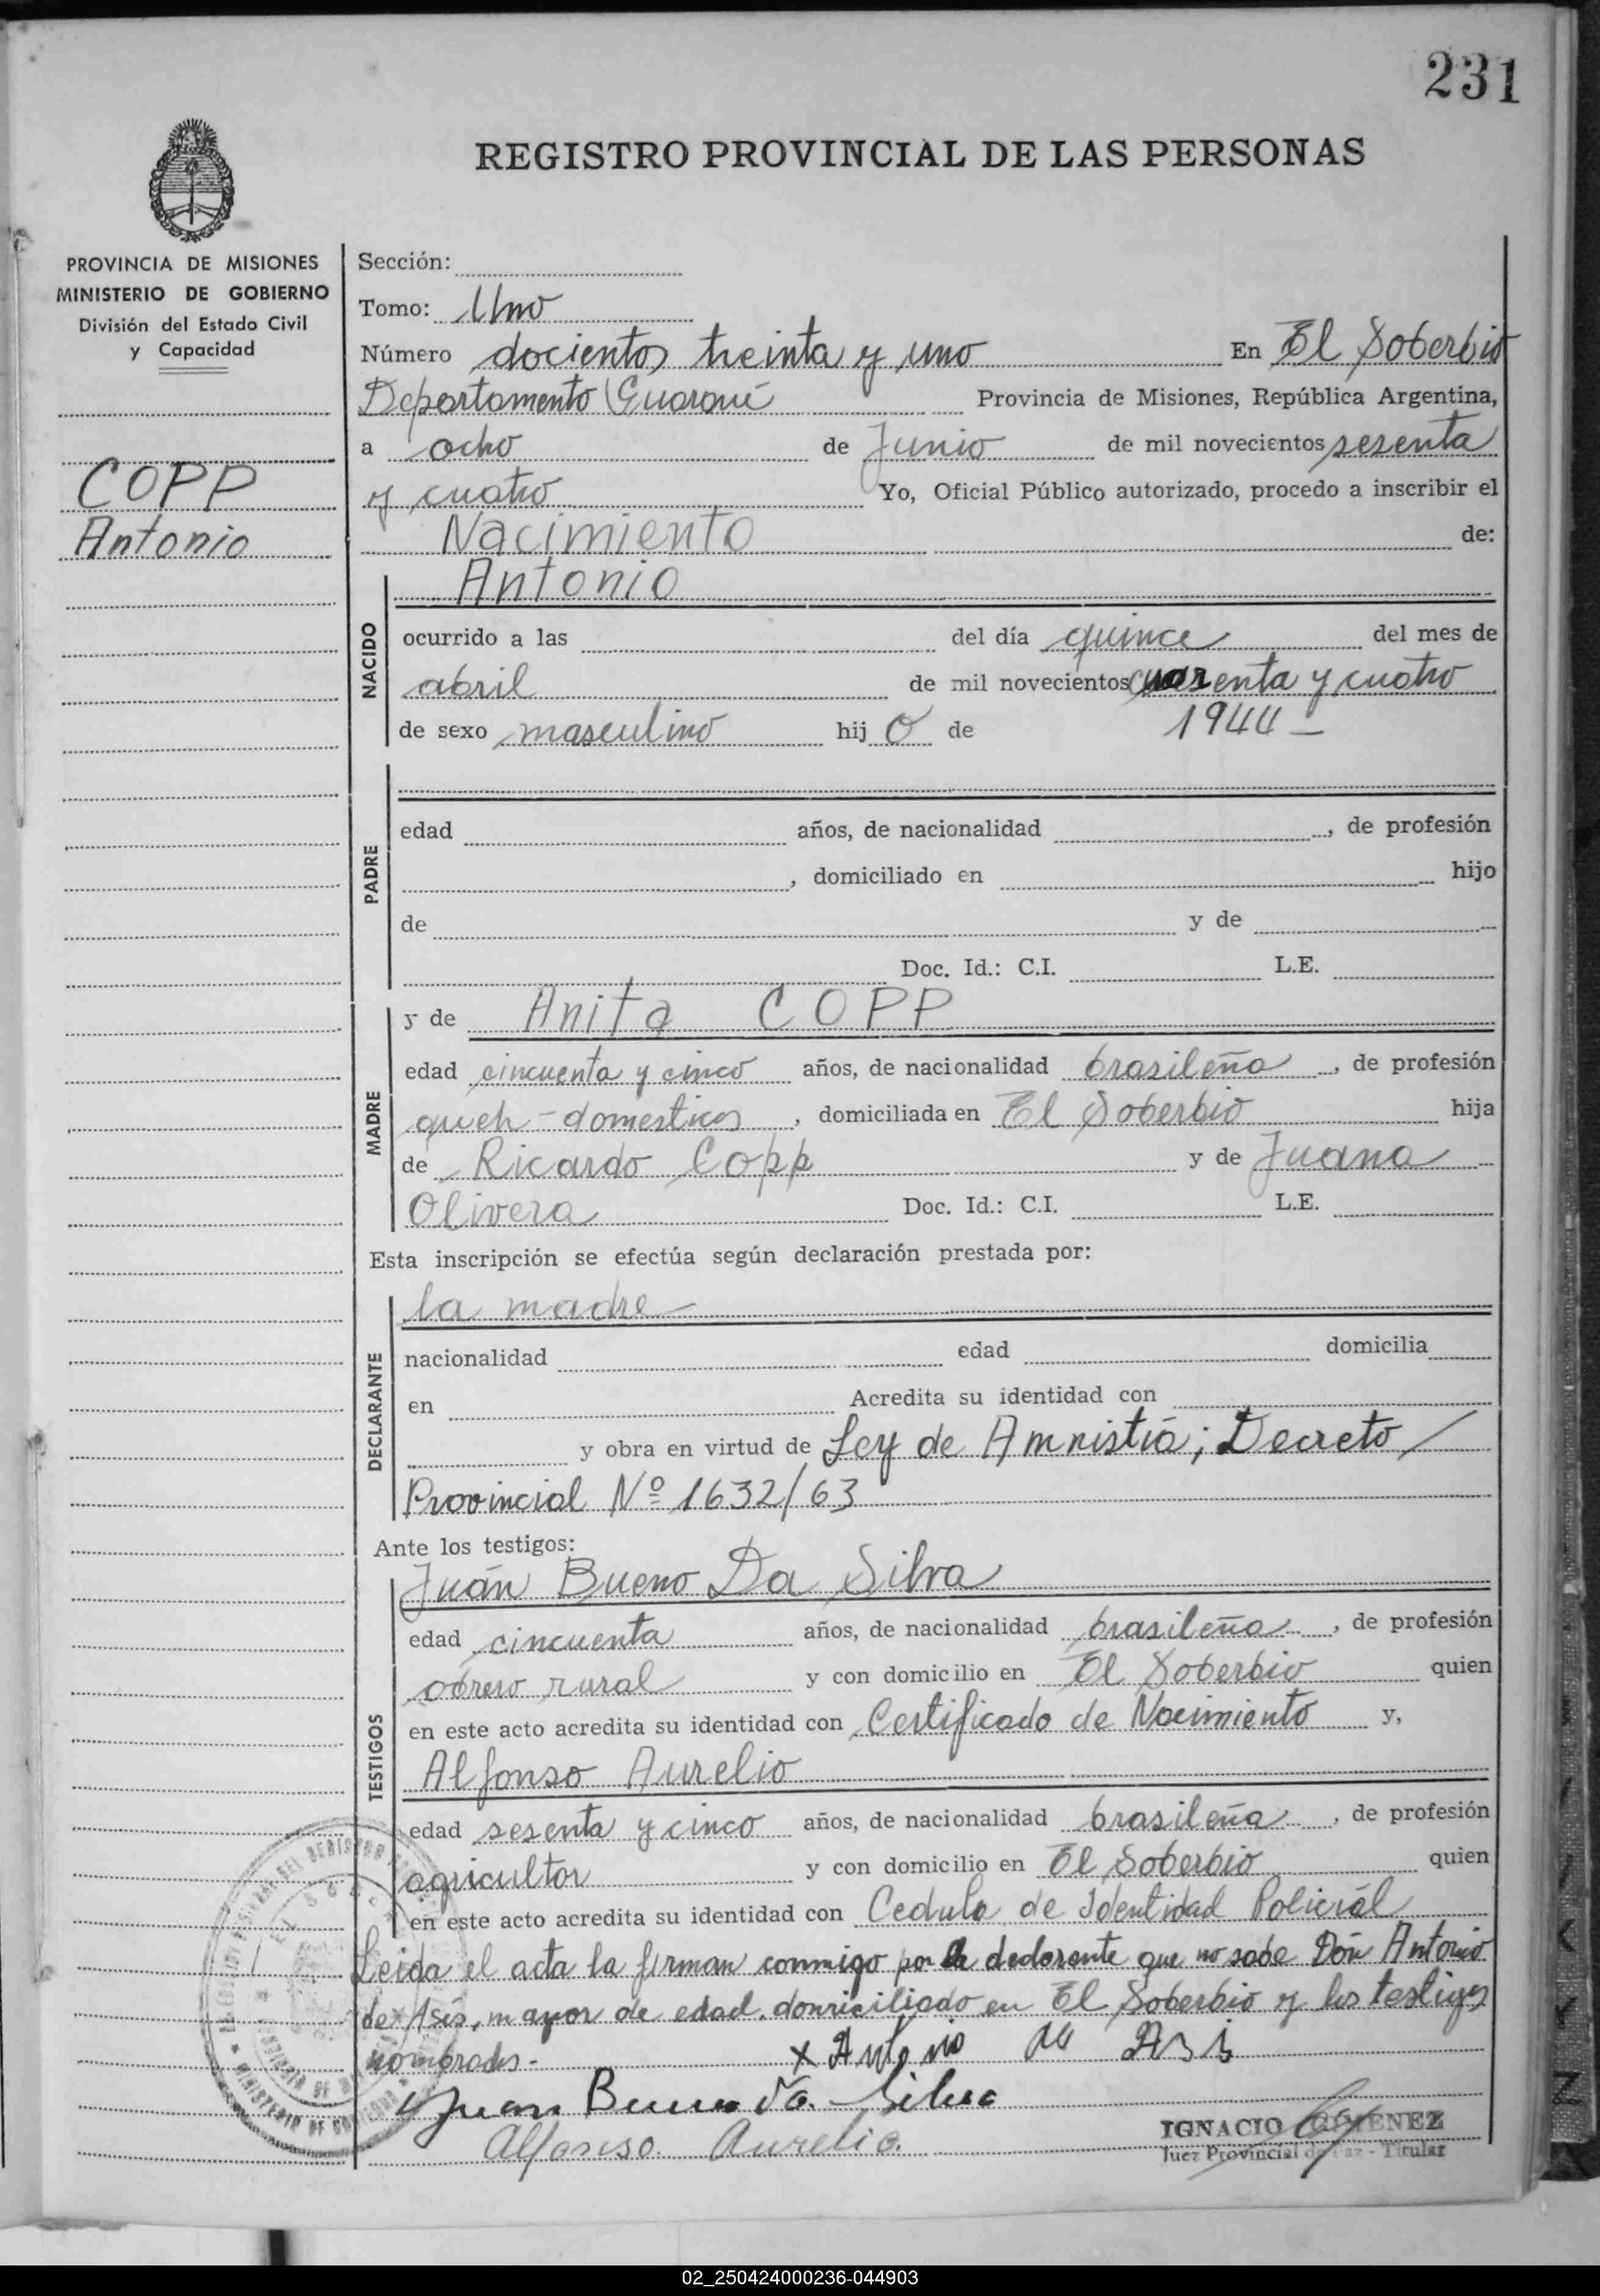 231
REGISTRO PROVINCIAL DE LAS PERSONAS
PROVINCIA DE MISIONES
MINISTERIO DE GOBIERNO
División del Estado Civil
y Capacidad
COPP
Antonio
Sección:
Tomo: Uno
Número docientos treinta y uno En El Soberbio
Departamento Guaraní Provincia de Misiones, República Argentina,
a ocho de Junio de mil novecientos sesenta
y cuatro Yo, Oficial Público autorizado, procedo a inscribir el
Nacimiento de:
NACIDO
Antonio
ocurrido a las del día quince del mes de
abril de mil novecientos cuarenta y cuatro
de sexo masculino hij o de 1944 -
PADRE
edad años, de nacionalidad , de profesión
, domiciliado en hijo
de y de
Doc. Id.: C.I. L.E.
MADRE
y de Anita COPP
edad cincuenta y cinco años, de nacionalidad brasileña , de profesión
queh-domesticos , domiciliada en El Soberbio hija
de Ricardo Copp y de Juana
Olivera Doc. Id.: C.I. L.E.
Esta inscripción se efectúa según declaración prestada por:
DECLARANTE
la madre
nacionalidad edad domicilia
en Acredita su identidad con
y obra en virtud de Ley de Amnistía; Decreto
Provincial Nº 1632/63
Ante los testigos:
TESTIGOS
Juán Bueno Da Silva
edad cincuenta años, de nacionalidad brasileña , de profesión
obrero rural y con domicilio en El Soberbio quien
en este acto acredita su identidad con Certificado de Nacimiento y,
Alfonso Aurelio
edad sesenta y cinco años, de nacionalidad brasileña , de profesión
agricultor y con domicilio en El Soberbio quien
en este acto acredita su identidad con Cedula de Identidad Policiál
Leida el acta la firman conmigo por la declarante que no sabe Dón Antonio
de Asis, mayor de edad. domiciliado en El Soberbio y los testigos
nombrados.-
x Antonio de Asi
Juan Bueno da Silva
Alfonso Aurelio.
IGNACIO GIMENEZ
Juez Provincial de Paz - Titular
02_250424000236-044903